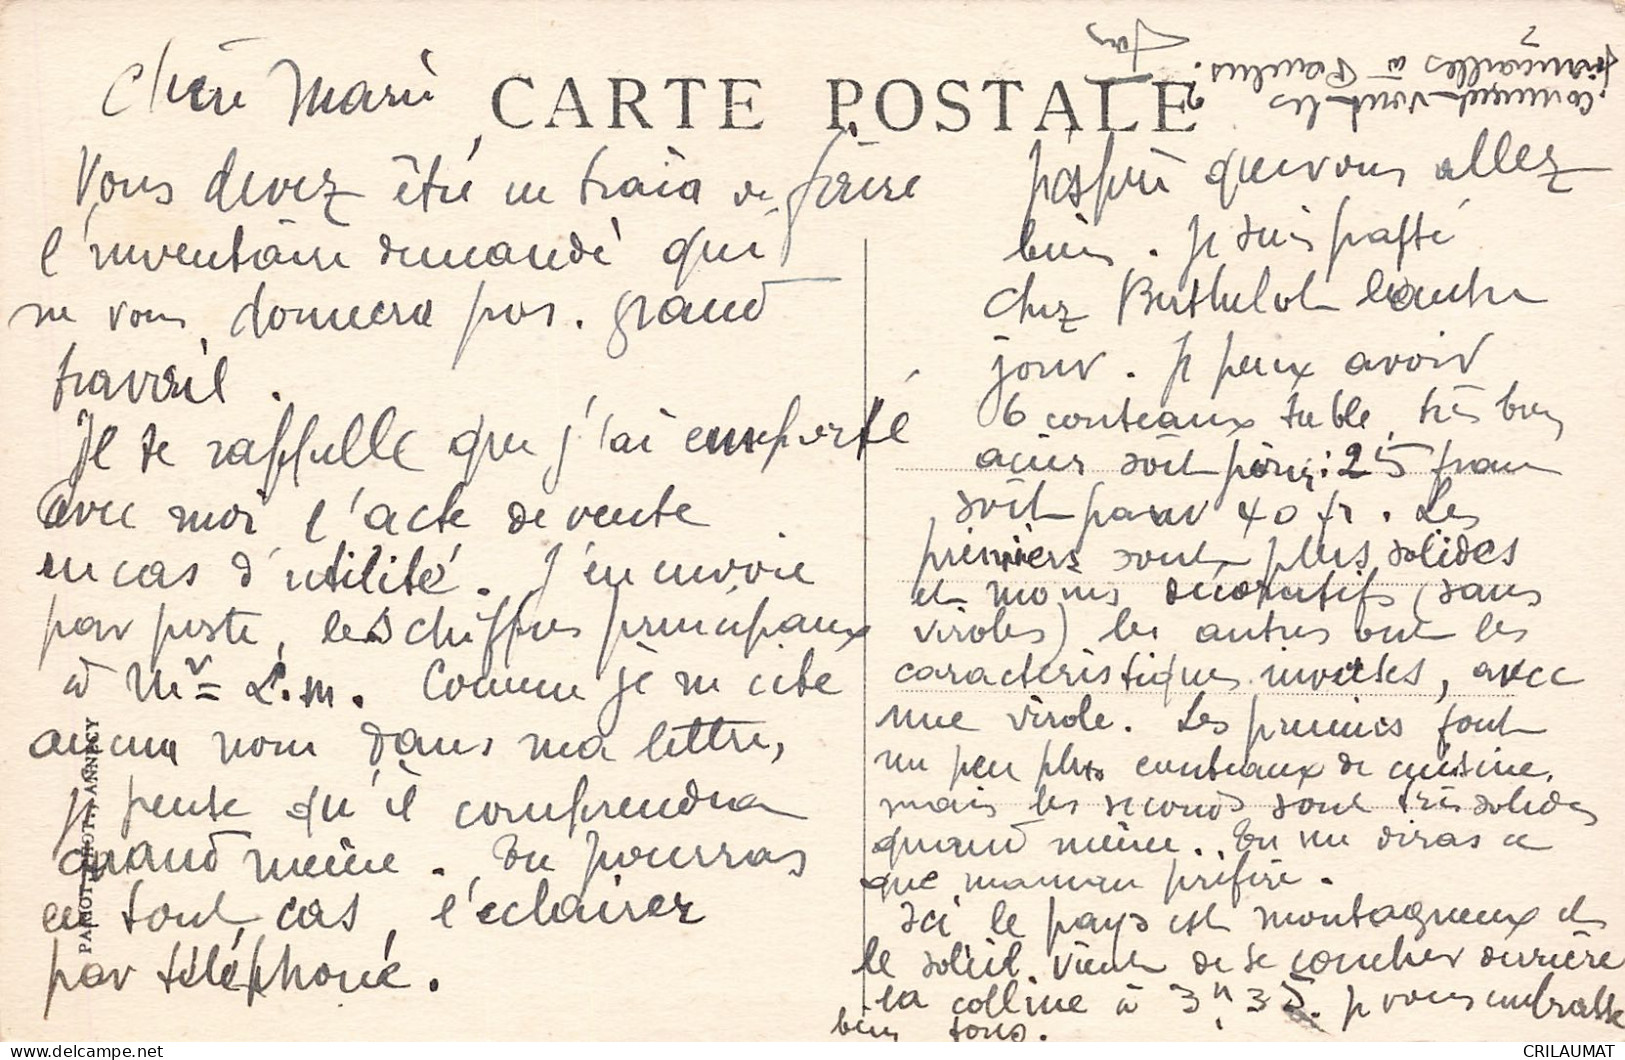 CARTE POSTALE
Chère Marie
Vous devez être en train de faire
l'inventaire demandé qui
ne vous donnera pas grand
travail.
Je te rappelle que j'ai emporté
avec moi l'acte de vente
en cas d'utilité. J'en envoie
par poste, les chiffres principaux
à Mr L.M. Comme je ne cite
aucun nom dans ma lettre,
je pense qu'il comprendra
quand même. Tu pourras
en tout cas l'éclairer
par téléphone.
PHOT. ANNECY
J'espère que vous allez
bien. Je suis passé
chez Berthelot l'autre
jour. Je peux avoir
6 couteaux table, très bon
acier soit pour: 25 francs
soit pour 40 fr. Les
premiers sont plus solides
et moins décoratifs (sans
viroles) les autres ont les
caractéristiques inverses, avec
une virole. Les premiers font
un peu plus couteaux de cuisine.
mais les seconds sont très solides
quand même. Tu me diras ce
que maman préfère.
Ici le pays est montagneux et
le soleil vient de se coucher derrière
la colline à 3h 35. Je vous embrasse
bien tous.
comment vont les
fiançailles à Paulus?
CRILAUMAT